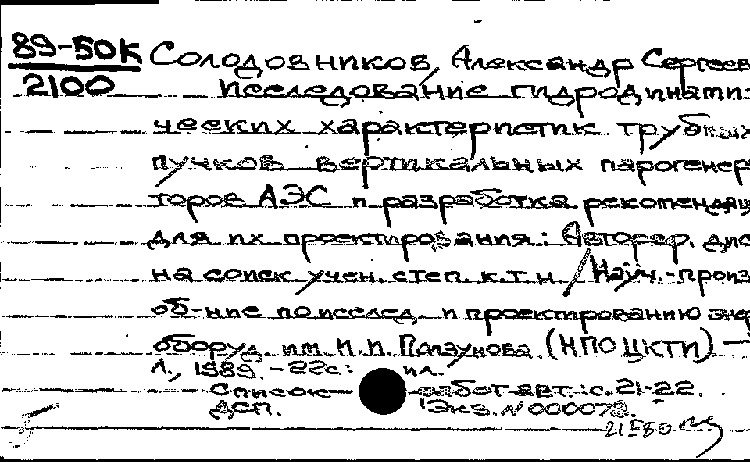 89-50К
2100
Солодовников, Александр Сергеев
Исследование гидродинами-
ческих характеристик трубных
пучков вертикальных парогенер
торов АЭС и разработка рекомендац
для их проектирования: Автореф. дис
на соиск учен. степ. к.т.н. / Науч.-произ
об-ние по исслед. и проектированию энер
оборуд. им. И.И. Ползунова (НПО ЦКТИ) —
Л., 1989. - 22с: ил.
Список работ авт.: с. 21-22.
ДСП. Экз. N 000078.